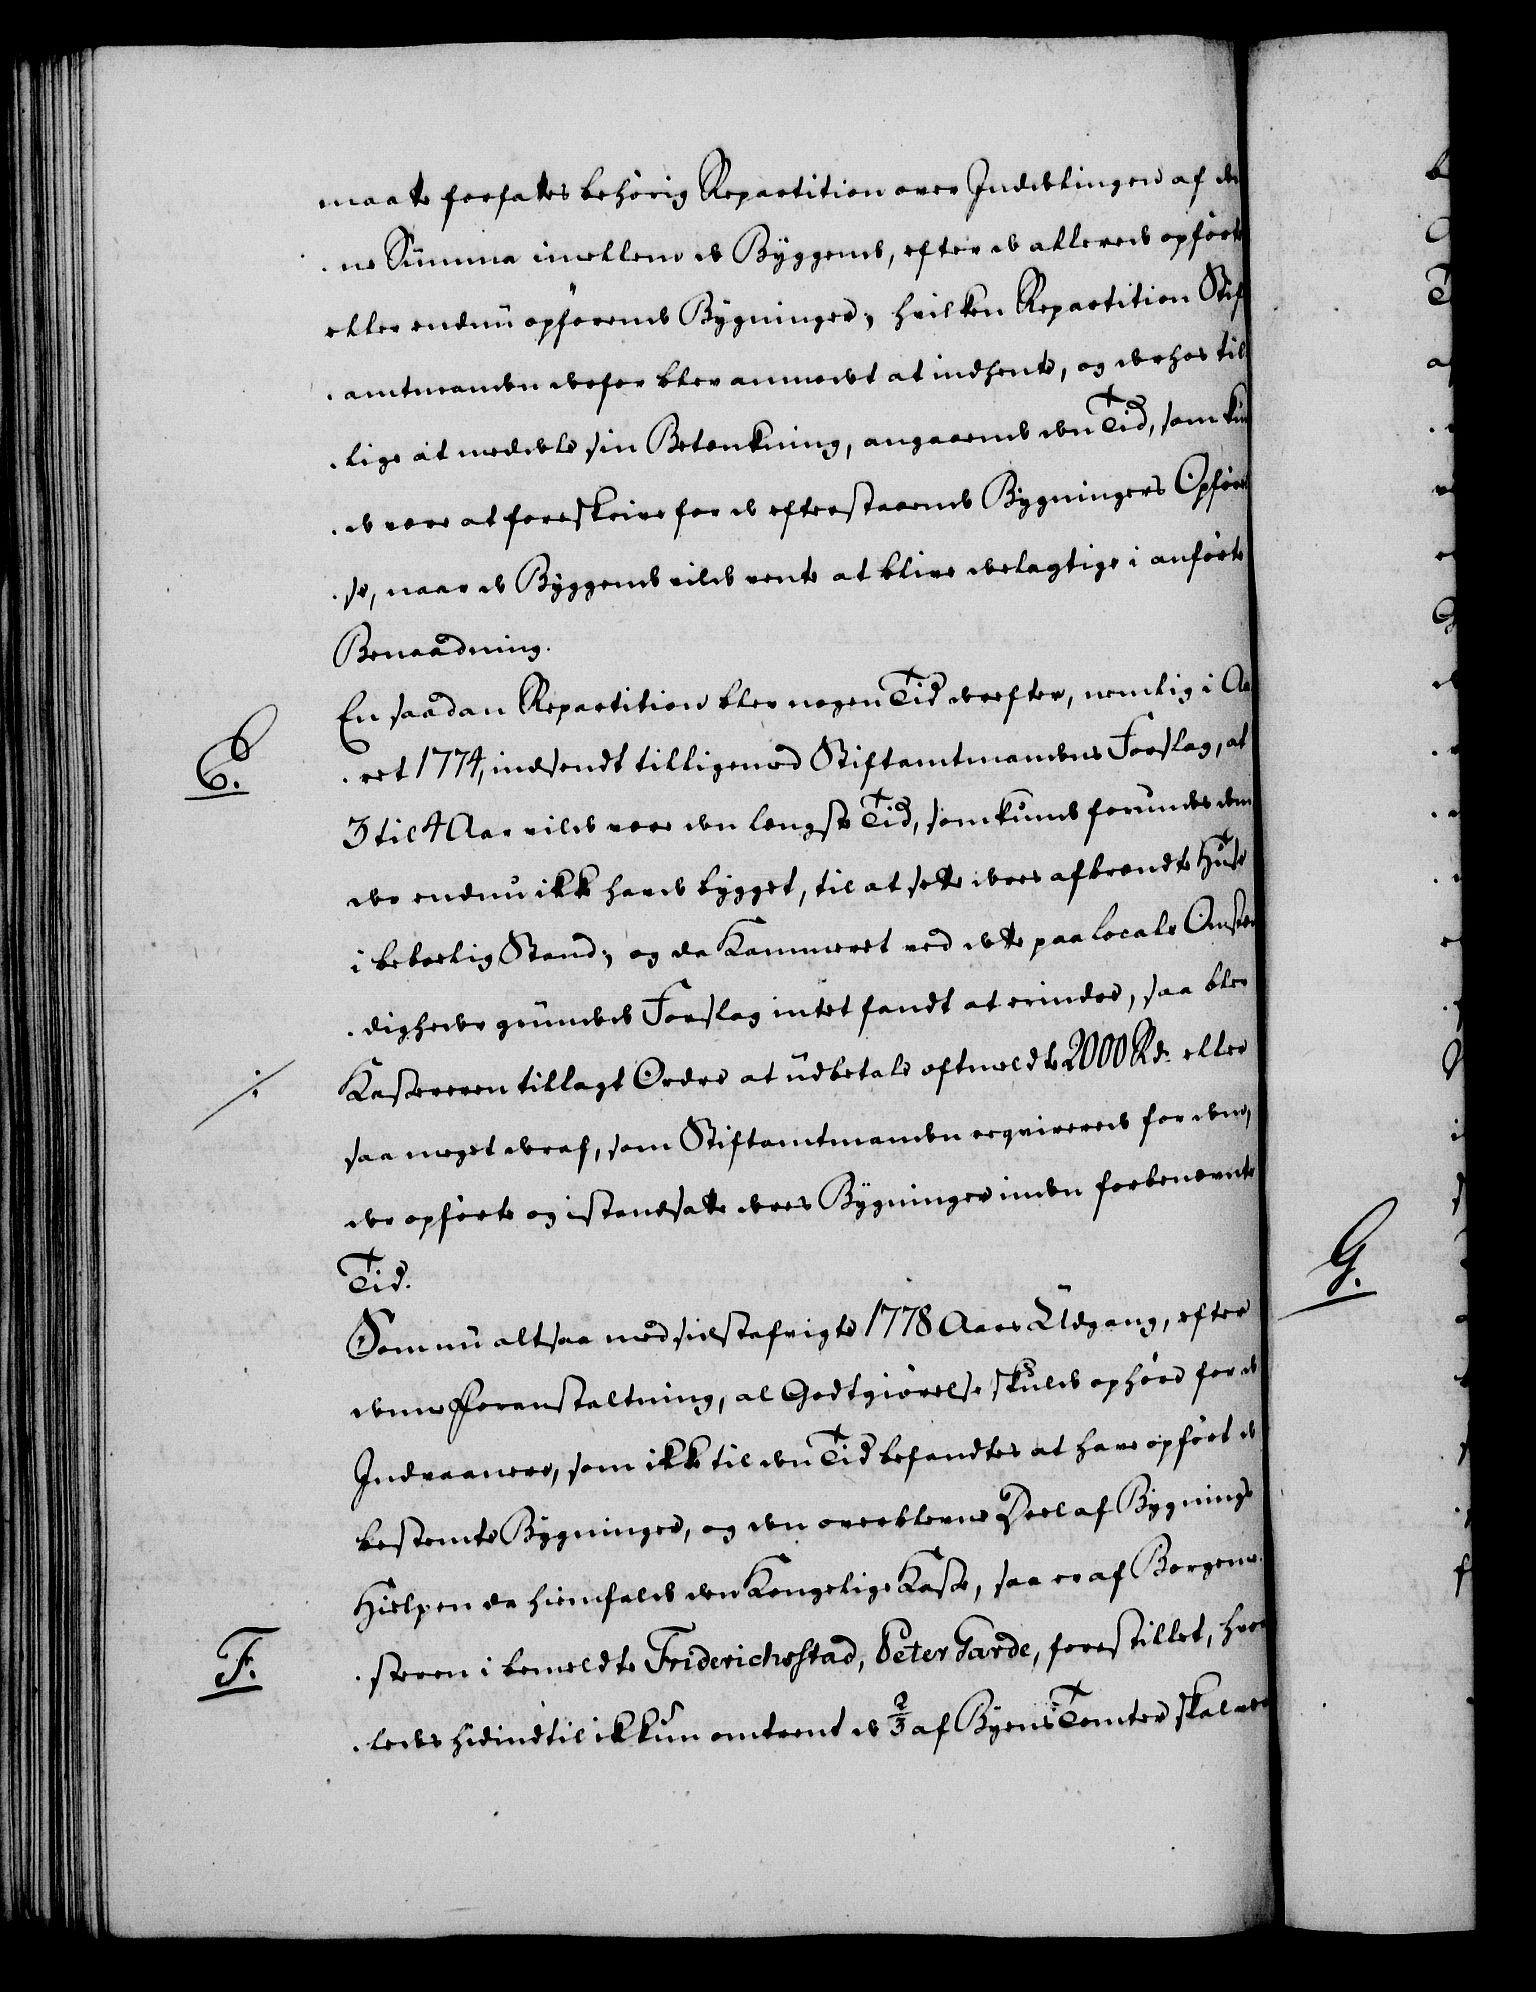 maatte forfattes behørig Repartition over Inddelingen af den
ne Summa imellem de Byggende, efter de allerede opførte
eller endnu opførende Bygninger; hvilken Repartition Stif
amtmanden derfor blev anmodet at indhente, og derhos til
lige at meddele sin Betænkning, angaaende den Tid, som kun
de være at foreskrive for de efterstaaende Bygningers Opførel
se, naar de Byggende vilde vente at blive deelagtige i anførte
Benaadning.
E.
En saadan Repartition blev nogen Tid derefter, nemlig i Aa
ret 1774, indsendt tilligemed Stiftamtmandens Forslag, at
3 til 4 Aar vilde være den længste Tid, som kunde forundes dem
der endnu ikke havde bygget, til at sætte deres afbrændte Huse
i beboelig Stand; og da Kammeret ved dette paa locale Omstæn
digheder grundede Forslag intet fandt at erindre, saa blev
Kassereren tillagt Ordre at udbetale oftmeldte 2000 Rd. eller
saa meget deraf, som Stiftamtmanden reqvirerede for dem,
der opførte og istandsatte deres Bygninger inden forbenævnte
Tid.
Som nu altsaa med sidstafvigte 1778 Aars Udgang, efter
denne Foranstaltning, al Godtgiørelse skulde ophøre for de
Indvaanere, som ikke til den Tid befandtes at have opført de
bestemte Bygninger, og den overblevne Deel af Bygnings
Hielpen da hiemfalde den Kongelige Kasse, saa er af Borgeme
F.
steren i bemeldte Friderichsstad, Peter Garde, forestillet, hvor
ledes hidindtil ikkun omtrent de 2/3 af Byens Tomter skal være
G.